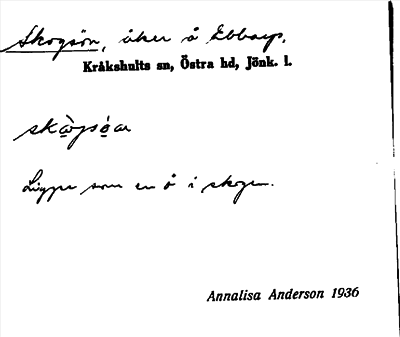 Skogsön, åker å Ebbarp.
Kråkshults sn, Östra hd, Jönk. l.
Ligger som en ö i skogen.
Annalisa Anderson 1936